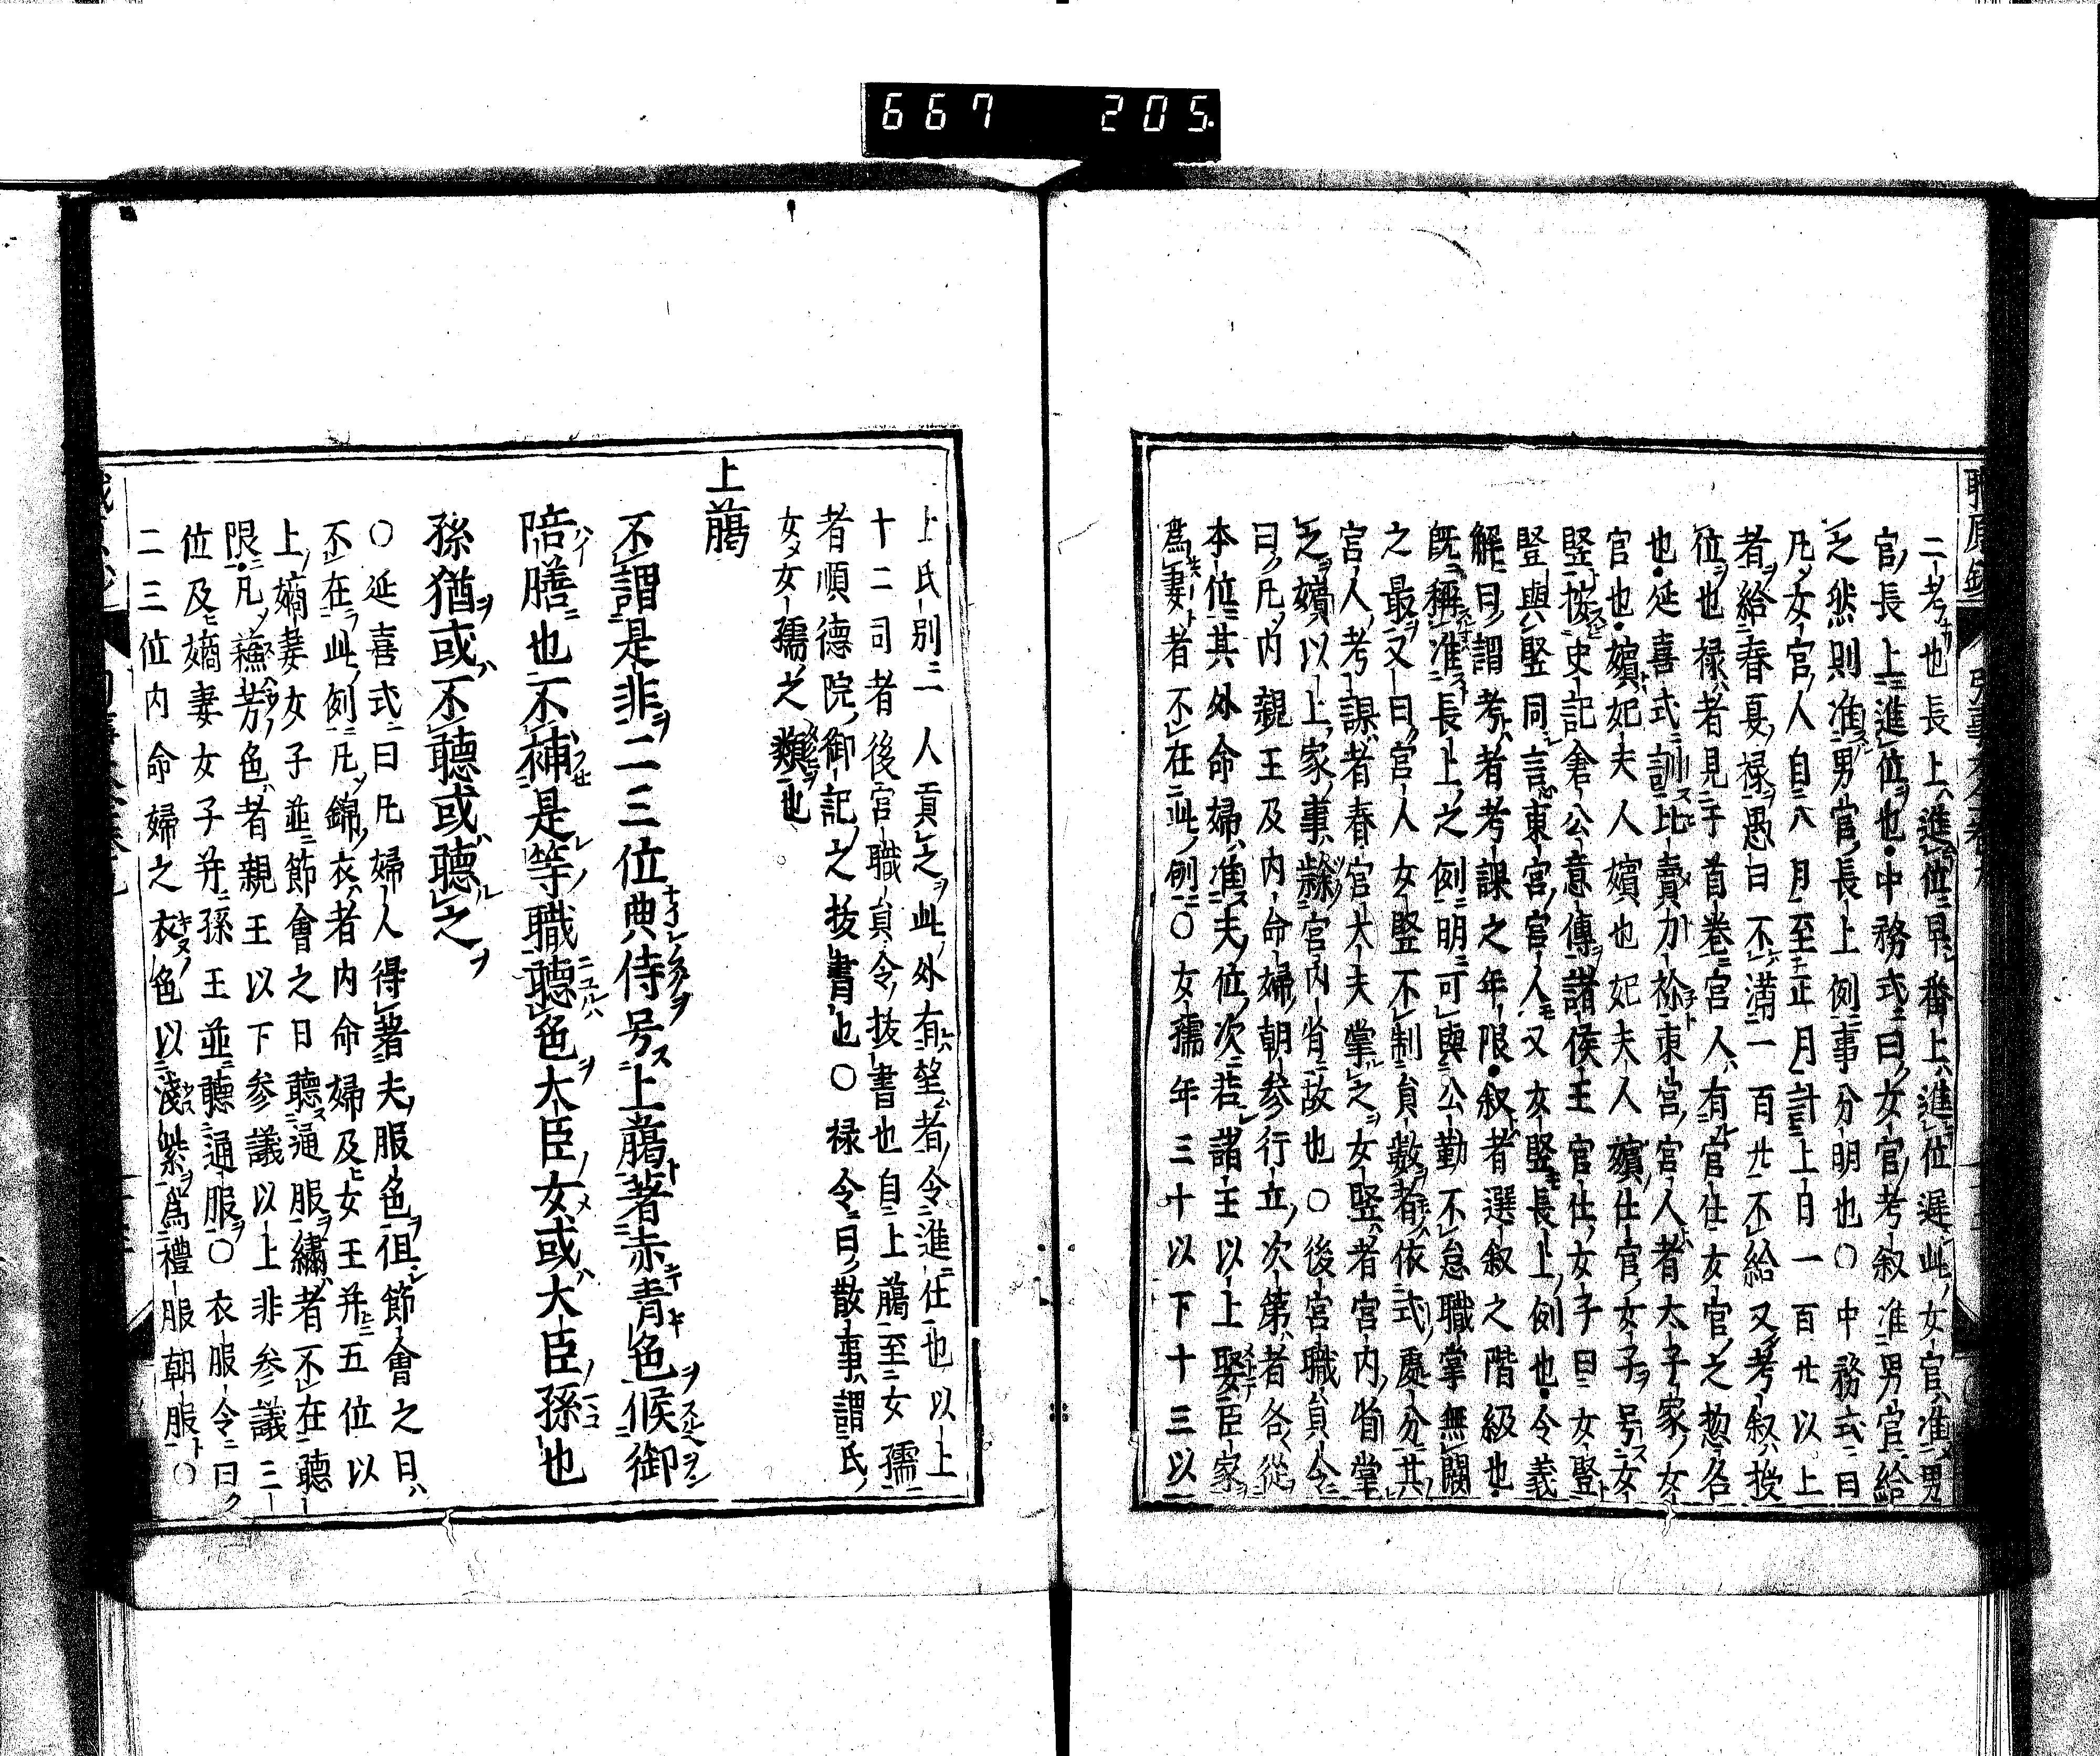 667 205
二考也長上進位早番上進位遅此女官准男
官長上進位也中務式曰女官考叙准男官給
之然則准男官長上例事分明也〇中務式曰
凡女官人自八月至正月計上日一百廿以上
者給春夏禄愚曰不満一百廿不給又考叙授
位也禄者見于首巻宮人有官仕女官之惣名
也延喜式訓比賣刀祢東宮宮人者太子家女
官也嬪妃夫人嬪也妃夫人嬪仕官女子号女
竪按史記倉公意傳諸侯王官仕女子曰女竪
竪與竪同言東宮宮人又亥竪長上例也令義
解曰謂考者考課之年限叙者選叙之階級也
既稱准長上之例明可與公勤不怠職掌無闕
之最又曰宮人女竪不制員数者依式處分其
宮人考課者春宮大夫掌之女竪者宮内省掌
之嬪以上家事隷宮内省故也〇後宮職員令
曰凡内親王及内命婦朝参行立次第者各從
本位其外命婦准夫位次若諸王以上娶臣家
為妻者不在此例〇女孺年三十以下十三以
上氏別二人貢之此外有望者令進仕也以上
十二司者後宮職員令抜書也自上﨟至女孺
者順德院御記之抜書也〇禄令曰散事謂氏
女女孺之類也
上﨟
不謂是非二三位典侍号上﨟著赤青色候御
陪膳也不補是等職聽色大臣女或大臣孫也
孫猶或不聽或聽之
〇延喜式曰凡婦人得著夫服色徂節會之日
不在此例凡錦衣者内命婦及女王并五位以
上嫡妻女子並節會之日聽通服繡者不在聽
限凡蘓芳色者親王以下参議以上非参議三
位及嫡妻女子并孫王並聽通服〇衣服令曰
二三位内命婦之衣色以淺紫為禮服朝服〇